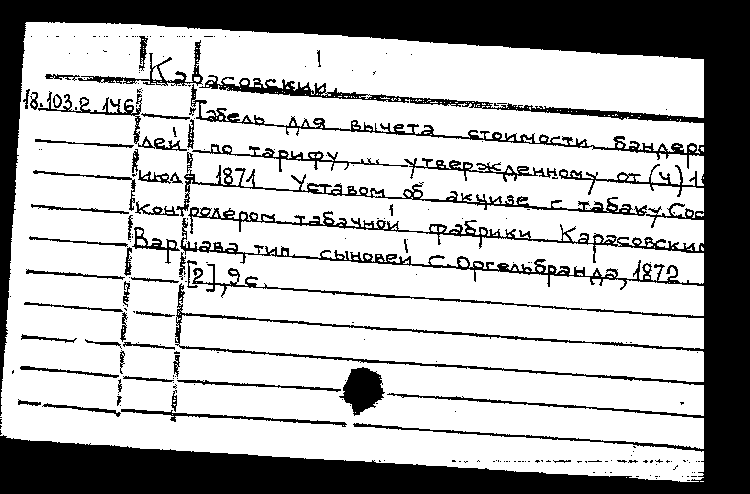 Карасовский.
18.103.2.146 Табель для вычета стоимости бандеро
лей по тарифу, ... утвержденному от (4) 16
июля 1871 Уставом об акцизе с табаку. Сос
контролером табачной фабрики Карасовским
Варшава, тип. сыновей С. Оргельбранда, 1872.
[2], 9 с.